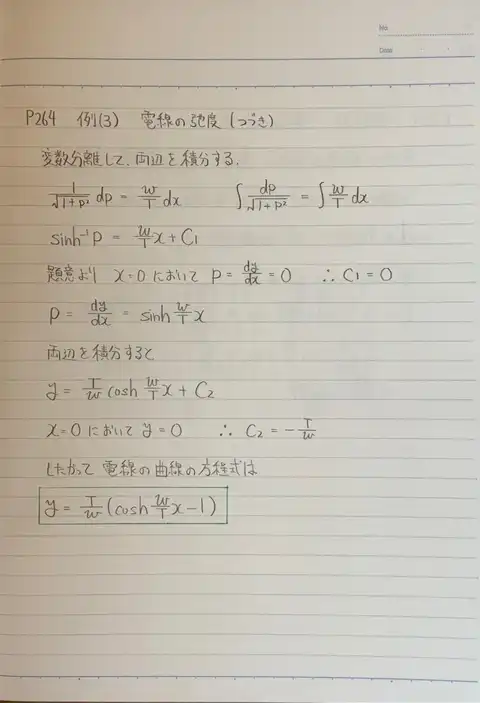 No.
Date
P264 例(3) 電線の弛度 (つづき)
変数分離して、両辺を積分する.
1/√(1+p²) dp = w/T dx ∫ dp/√(1+p²) = ∫ w/T dx
sinh⁻¹ p = w/T x + C₁
題意より x=0 において p = dy/dx = 0 ∴ C₁ = 0
p = dy/dx = sinh w/T x
両辺を積分すると
y = T/w cosh w/T x + C₂
x=0 において y=0 ∴ C₂ = - T/w
したがって 電線の曲線の方程式は
y = T/w (cosh w/T x - 1)